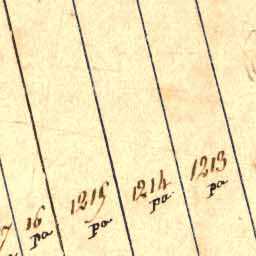 7 16 1215 1214 1213
pa pa pa pa